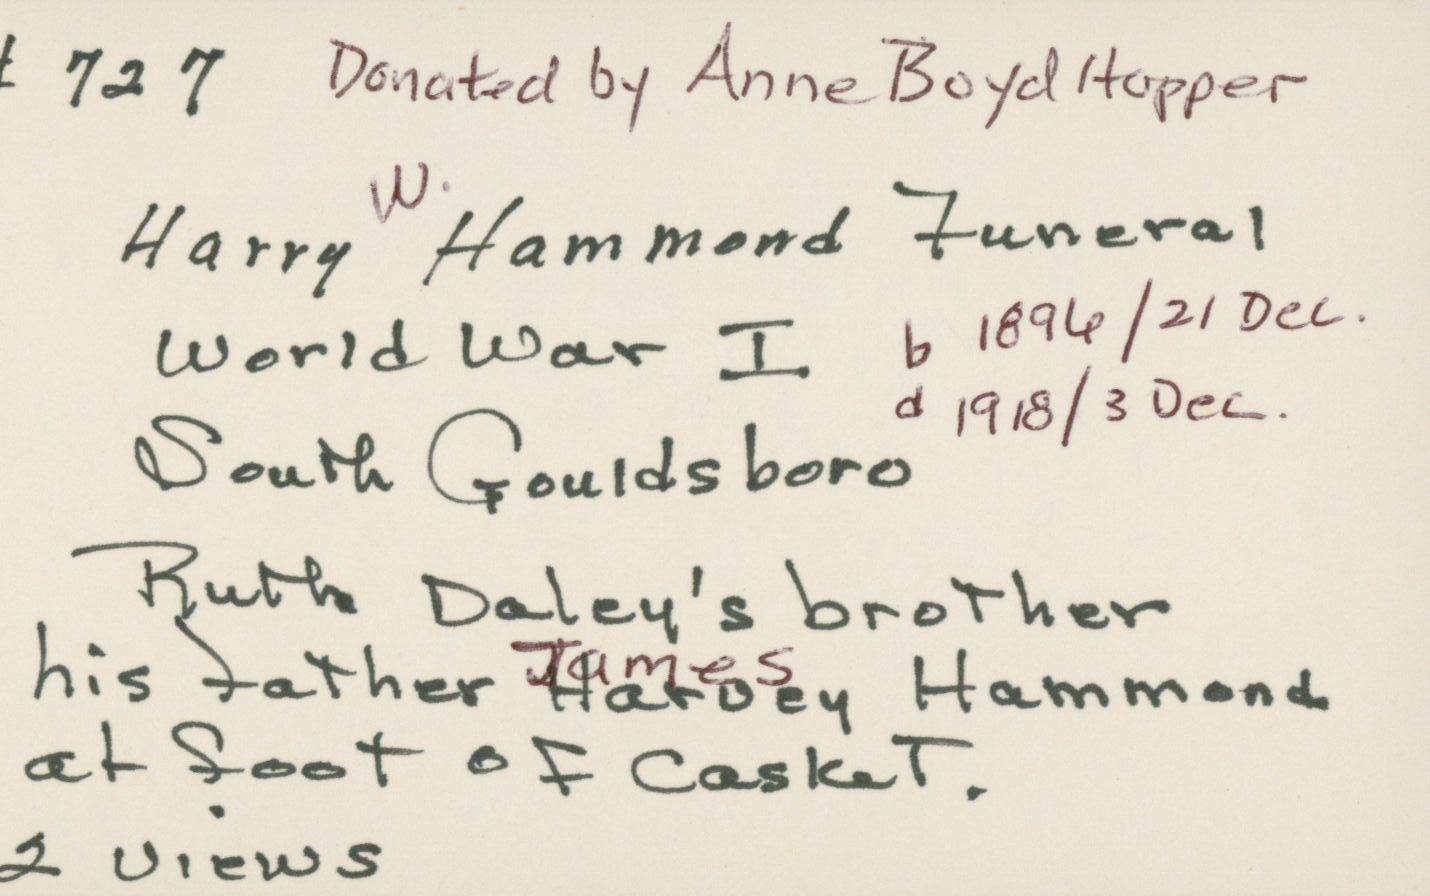 # 727 Donated by Anne Boyd Hopper
W.
Harry Hammond Funeral
World War I b 1896/21 Dec.
d 1918/3 Dec.
South Gouldsboro
Ruth Daley's brother
James
his father Harvey Hammond
at foot of Casket.
2 views